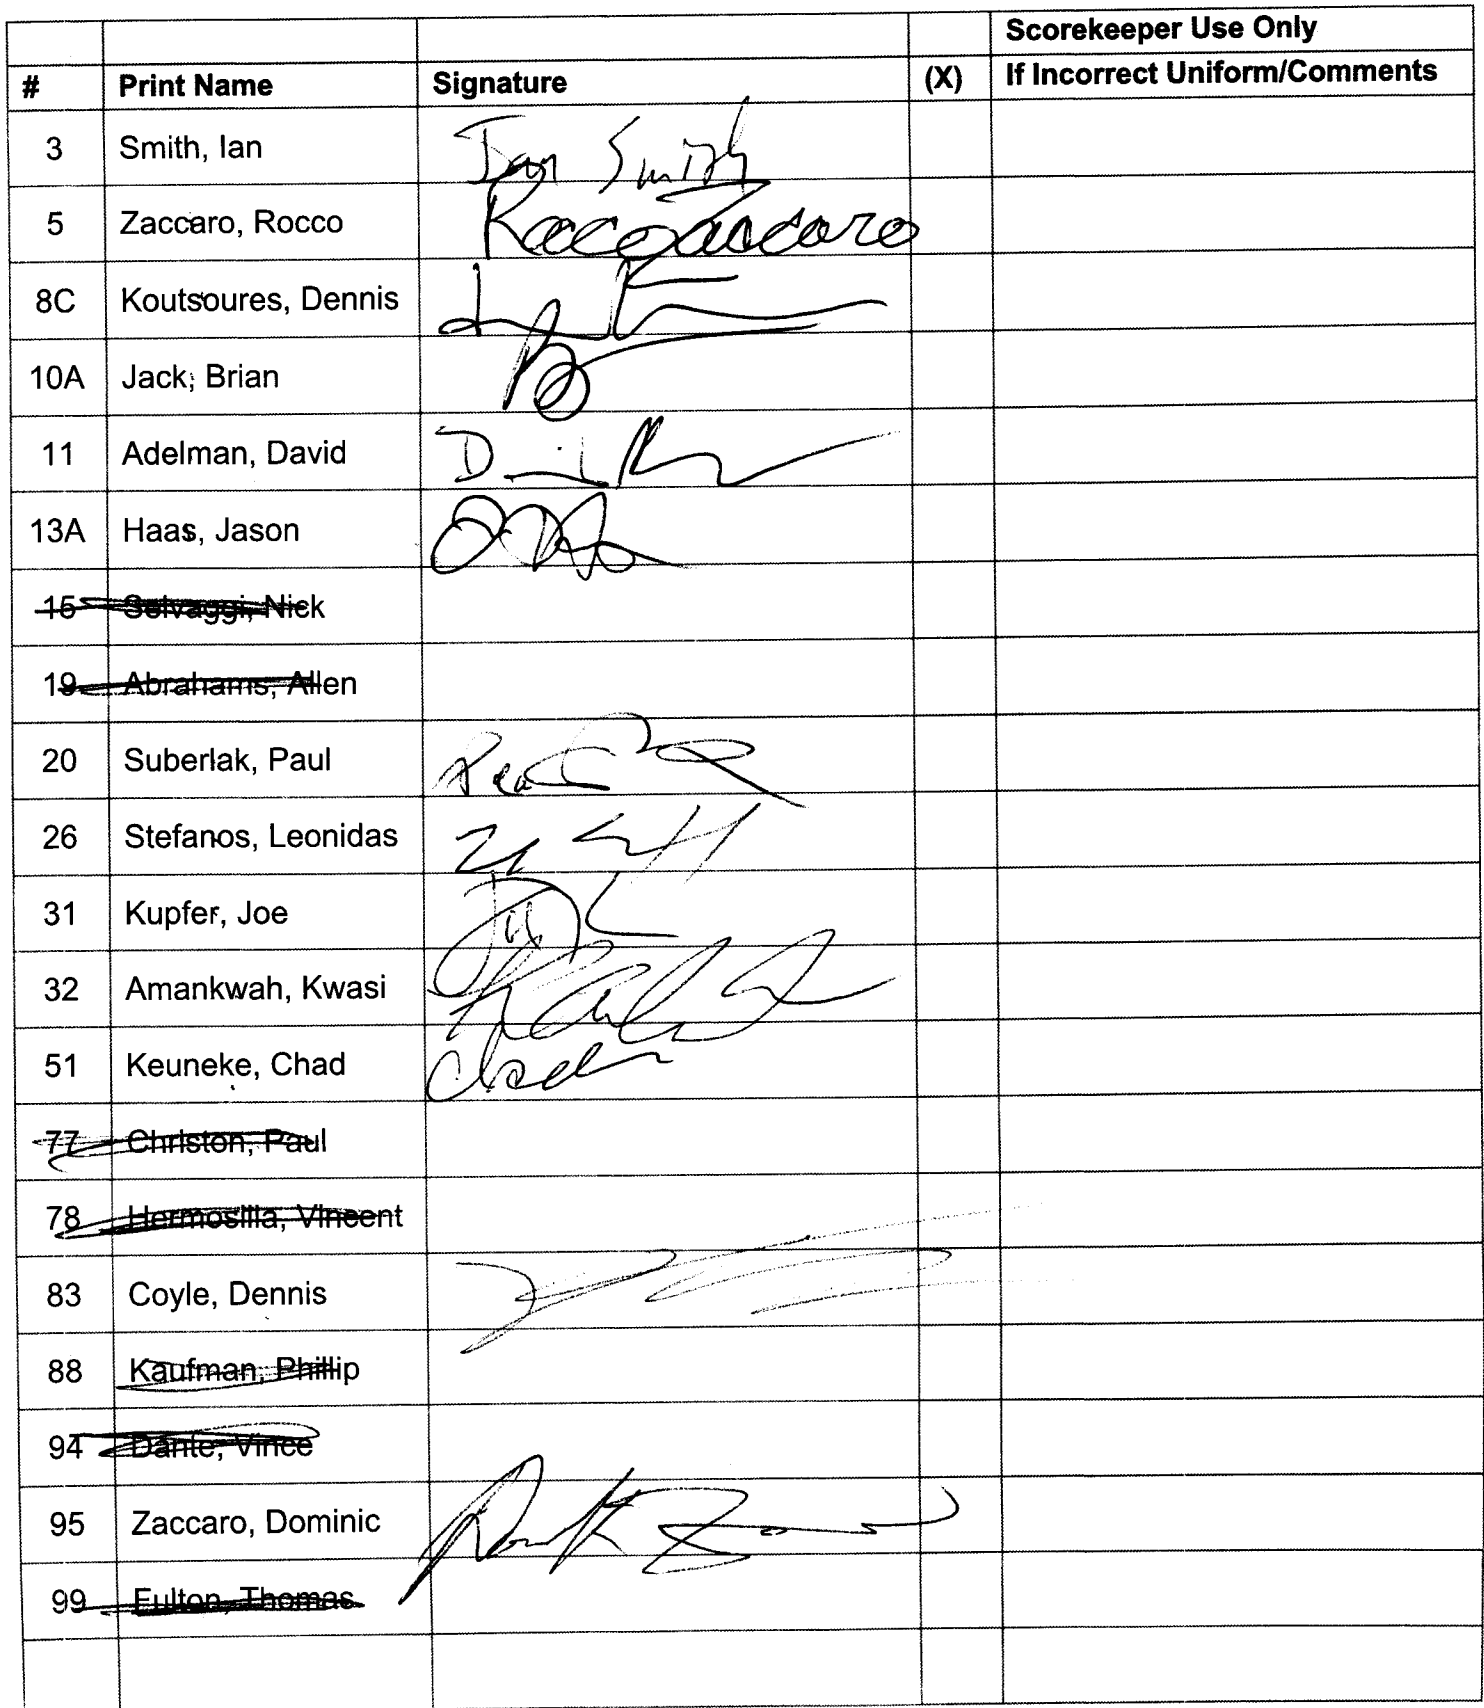 Scorekeeper Use Only
# Print Name Signature (X) If Incorrect Uniform/Comments
3 Smith, Ian Ian Smith
5 Zaccaro, Rocco Rocco Zaccaro
8C Koutsoures, Dennis
10A Jack, Brian
11 Adelman, David
13A Haas, Jason
15 Selvaggi, Nick
19 Abrahams, Allen
20 Suberlak, Paul
26 Stefanos, Leonidas
31 Kupfer, Joe
32 Amankwah, Kwasi
51 Keuneke, Chad Chad
77 Christon, Paul
78 Hermosilla, Vincent
83 Coyle, Dennis
88 Kaufman, Phillip
94 Dante, Vince
95 Zaccaro, Dominic
99 Fulton, Thomas